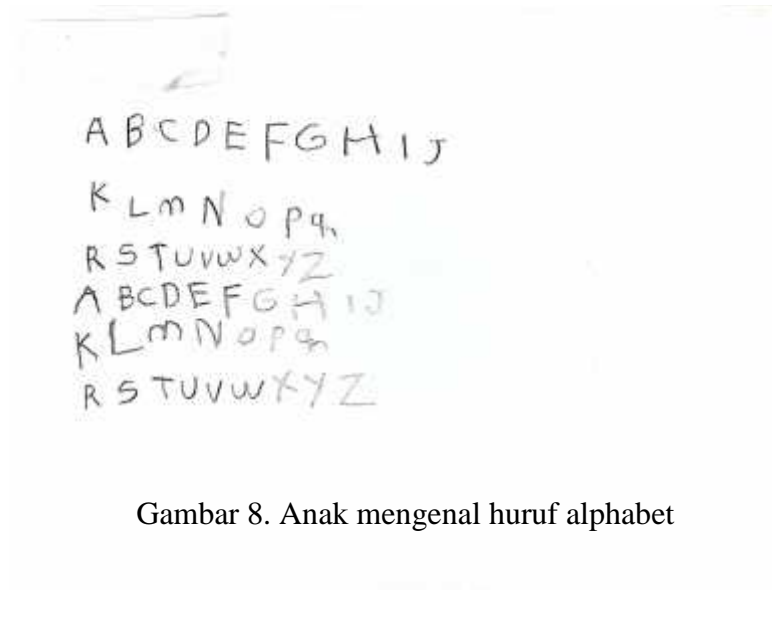 A B C D E F G H I J
K L m N O P q
R S T U V W X Y Z
A B C D E F G H I J
K L m N O P q
R S T U V W X Y Z
Gambar 8. Anak mengenal huruf alphabet